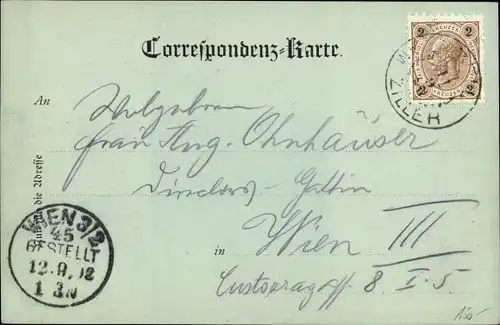 Correspondenz-Karte.
2 KREUZER 2
2 2
ZILLER
An
Wohlgeboren
Frau Aug. Ohnhäuser
Directors-Gattin
in Wien III
Custozzagasse 8 I. 5
die Adresse
WIEN 3/2
45
BESTELLT
12. 9. 02
1 3N
150